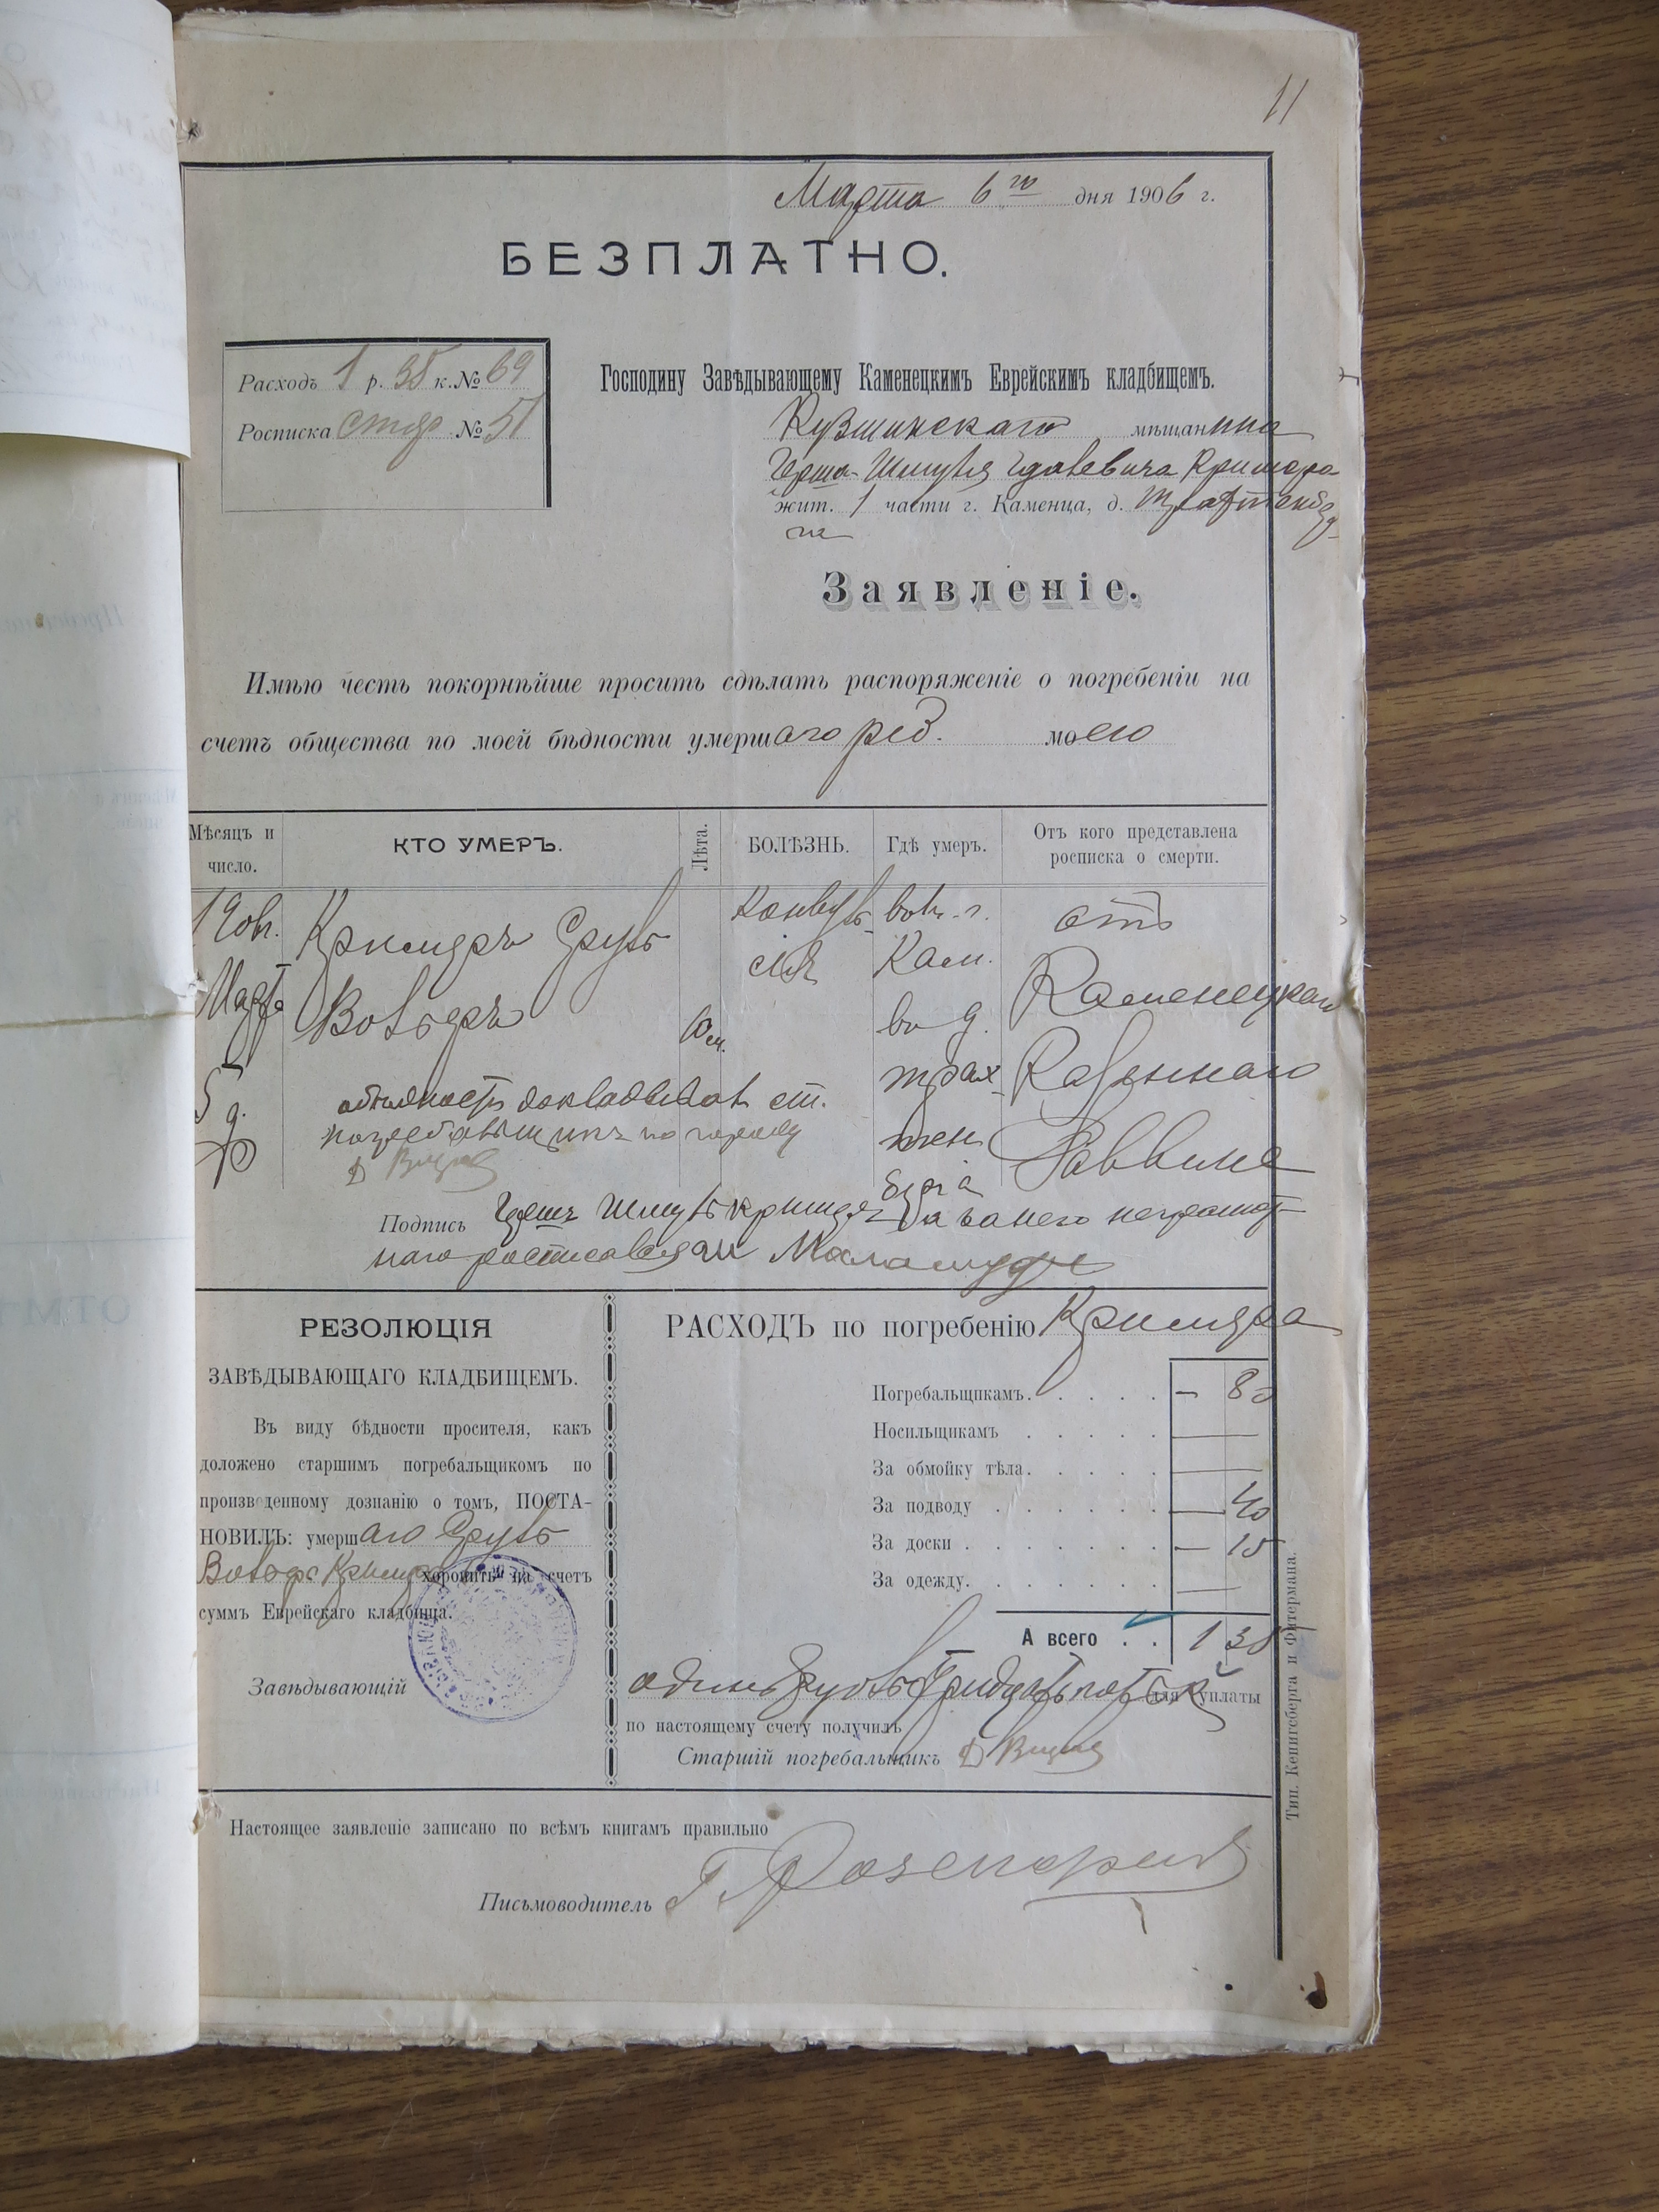 11
Марта 6го дня 1906 г.
БЕЗПЛАТНО.
Расходъ 1 р. 35 к. № 69
Росписка № 51
Господину Завѣдывающему Каменецкимъ Еврейскимъ кладбищемъ.
Кузминскаго мѣщанина
Герша-Шмуля Кримера
жит. 1 части г. Каменца, д.
на
Заявленіе.
Имѣю честь покорнѣйше просить сдѣлать распоряженіе о погребеніи на
счетъ общества по моей бѣдности умершаго реб. моего
Мѣсяцъ и число.
КТО УМЕРЪ.
Лѣта.
БОЛѢЗНЬ.
Гдѣ умеръ.
Отъ кого представлена росписка о смерти.
Марта
5 д.
Кримеръ Сруль
Вольфъ
10 м.
Конвуль
сія
въ г.
Кам.
въ д.
трах
тен
берга
отъ
Каменецкаго
Казеннаго
Раввина
о бѣдности докладывалъ ст.
погребальщикъ по городу
Подпись Гершъ Шмуль Кримеръ а за него неграмот
наго росписался
РЕЗОЛЮЦІЯ
ЗАВѢДЫВАЮЩАГО КЛАДБИЩЕМЪ.
Въ виду бѣдности просителя, какъ
доложено старшимъ погребальщикомъ по
произведенному дознанію о томъ, ПОСТА-
НОВИЛЪ: умершаго Сруль
Вольфъ Кримера хоронить на счетъ
суммъ Еврейскаго кладбища.
Завѣдывающій
РАСХОДЪ по погребенію Кримера
Погребальщикамъ. . . . . — 80
Носильщикамъ . . . . . —
За обмойку тѣла. . . . . —
За подводу . . . . . . — 40
За доски . . . . . . . — 15
За одежду. . . . . . . —
А всего . . 1 35
одинъ рубль тридцать пять к для уплаты
по настоящему счету получилъ
Старшій погребальщикъ
Настоящее заявленіе записано по всѣмъ книгамъ правильно
Письмоводитель Г.
Тип. Кенигсберга и Фитермана.